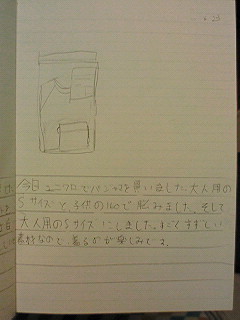 6 23
今日 ユニクロでパジャマを買いました。大人用の
Sサイズと、子供の160で悩みました。そして
大人用のSサイズにしました。すごくすずしい
素材なので、着るのが楽しみです。